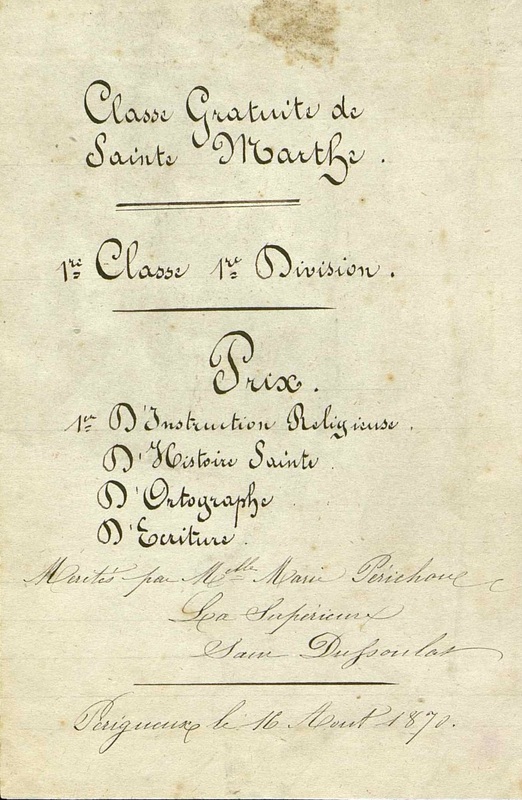 Classe Gratuite de
Sainte Marthe.
1re Classe 1re Division.
Prix.
1er D'Instruction Religieuse.
D'Histoire Sainte
D'Ortographe
D'Ecriture.
Mérités par Melle Marie
La Supérieure
Sœur
Périgueux le 16 Aout 1870.